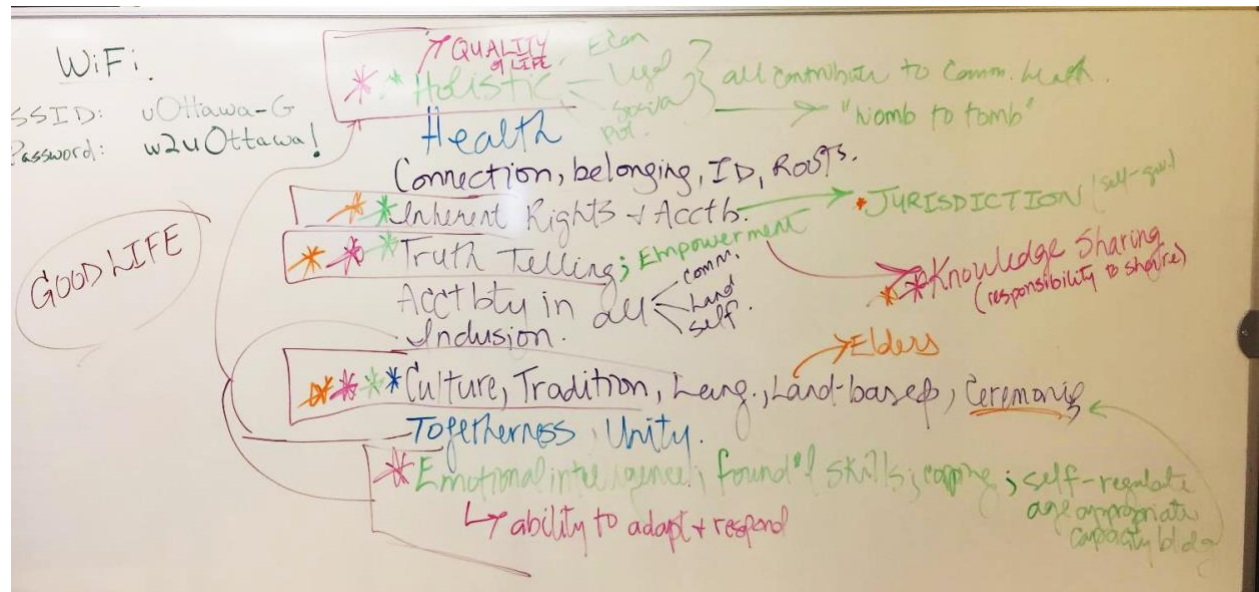 WiFi.
SSID: uOttawa-G
Password: w2uOttawa!
GOOD LIFE
QUALITY
of LIFE
Holistic
Econ
Legal
Social
Pol.
all contribute to Comm. health.
"Womb to tomb"
Health
Connection, belonging, ID, Roots.
Inherent Rights + Acctb.
JURISDICTION (self-gov)
Truth Telling; Empowerment
Knowledge Sharing
(responsibility to share)
Acctbty in all
comm.
Land
self.
Inclusion.
Elders
Culture, Tradition, Lang., Land-based, Ceremonies
Togetherness, Unity.
Emotional intelligence; found'l skills; copping; self-regulate
age appropriate
capacity bldg
ability to adapt + respond